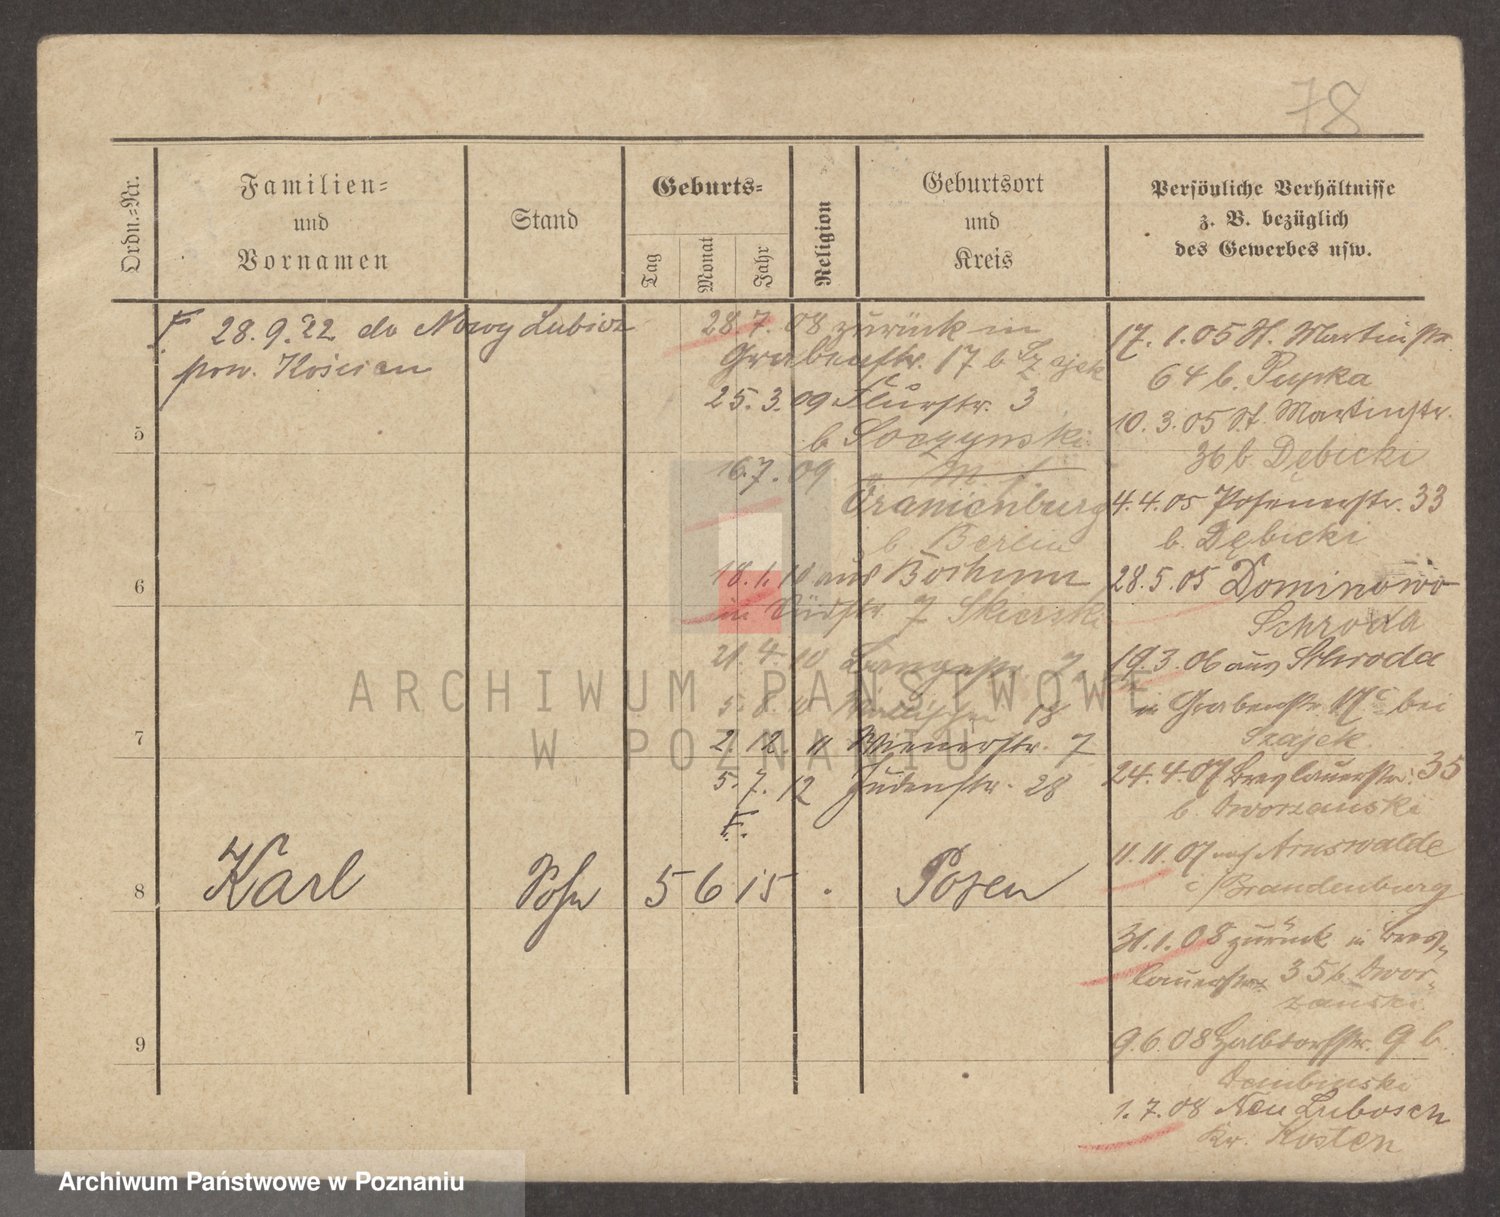 78
Ordn.=Nr.
Familien=
und
Vornamen
Stand
Geburts=
Tag
Monat
Jahr
Religion
Geburtsort
und
Kreis
Persönliche Verhältnisse
z. B. bezüglich
des Gewerbes usw.
F 28.9.22 do Nowy Lubosz
pow. Kościan
5
6
7
8
9
28.7.08 zurück in
Grabenstr. 17 b Szajek
25.3.09 Flurstr. 3
b Soczynski
16.7.09
Oranienburg
b. Berlin
18.1.10 aus Bochum
in Südstr. 7 Skierski
21.4.10 Langestr. 7
5.8. 18
2.12.11 Wienerstr. 7
5.7.12 Judenstr. 28
F.
Karl Sohn 5 6 15 . Posen
17.1.05 St. Martinstr.
64 b. Pupka
10.3.05 St. Martinstr.
36 b Dębicki
4.4.05 Posenerstr. 33
b. Dębicki
28.5.05 Dominowo
Schroda
19.3.06 aus Schroda
in Grabenstr. 17 bei
Szajek
24.4.07 Breslauerstr. 35
b. Dworzanski
11.11.07 nach Arnswalde
i/Brandenburg
31.1.08 zurück in Bres=
lauerstr 35 b. Dwor=
zanski
9.6.08 Halbdorfstr. 9 b.
Dembinski
1.7.08 Neu Lubosch
Kr. Kosten
ARCHIWUM PAŃSTWOWE
W POZNANIU
Archiwum Państwowe w Poznaniu